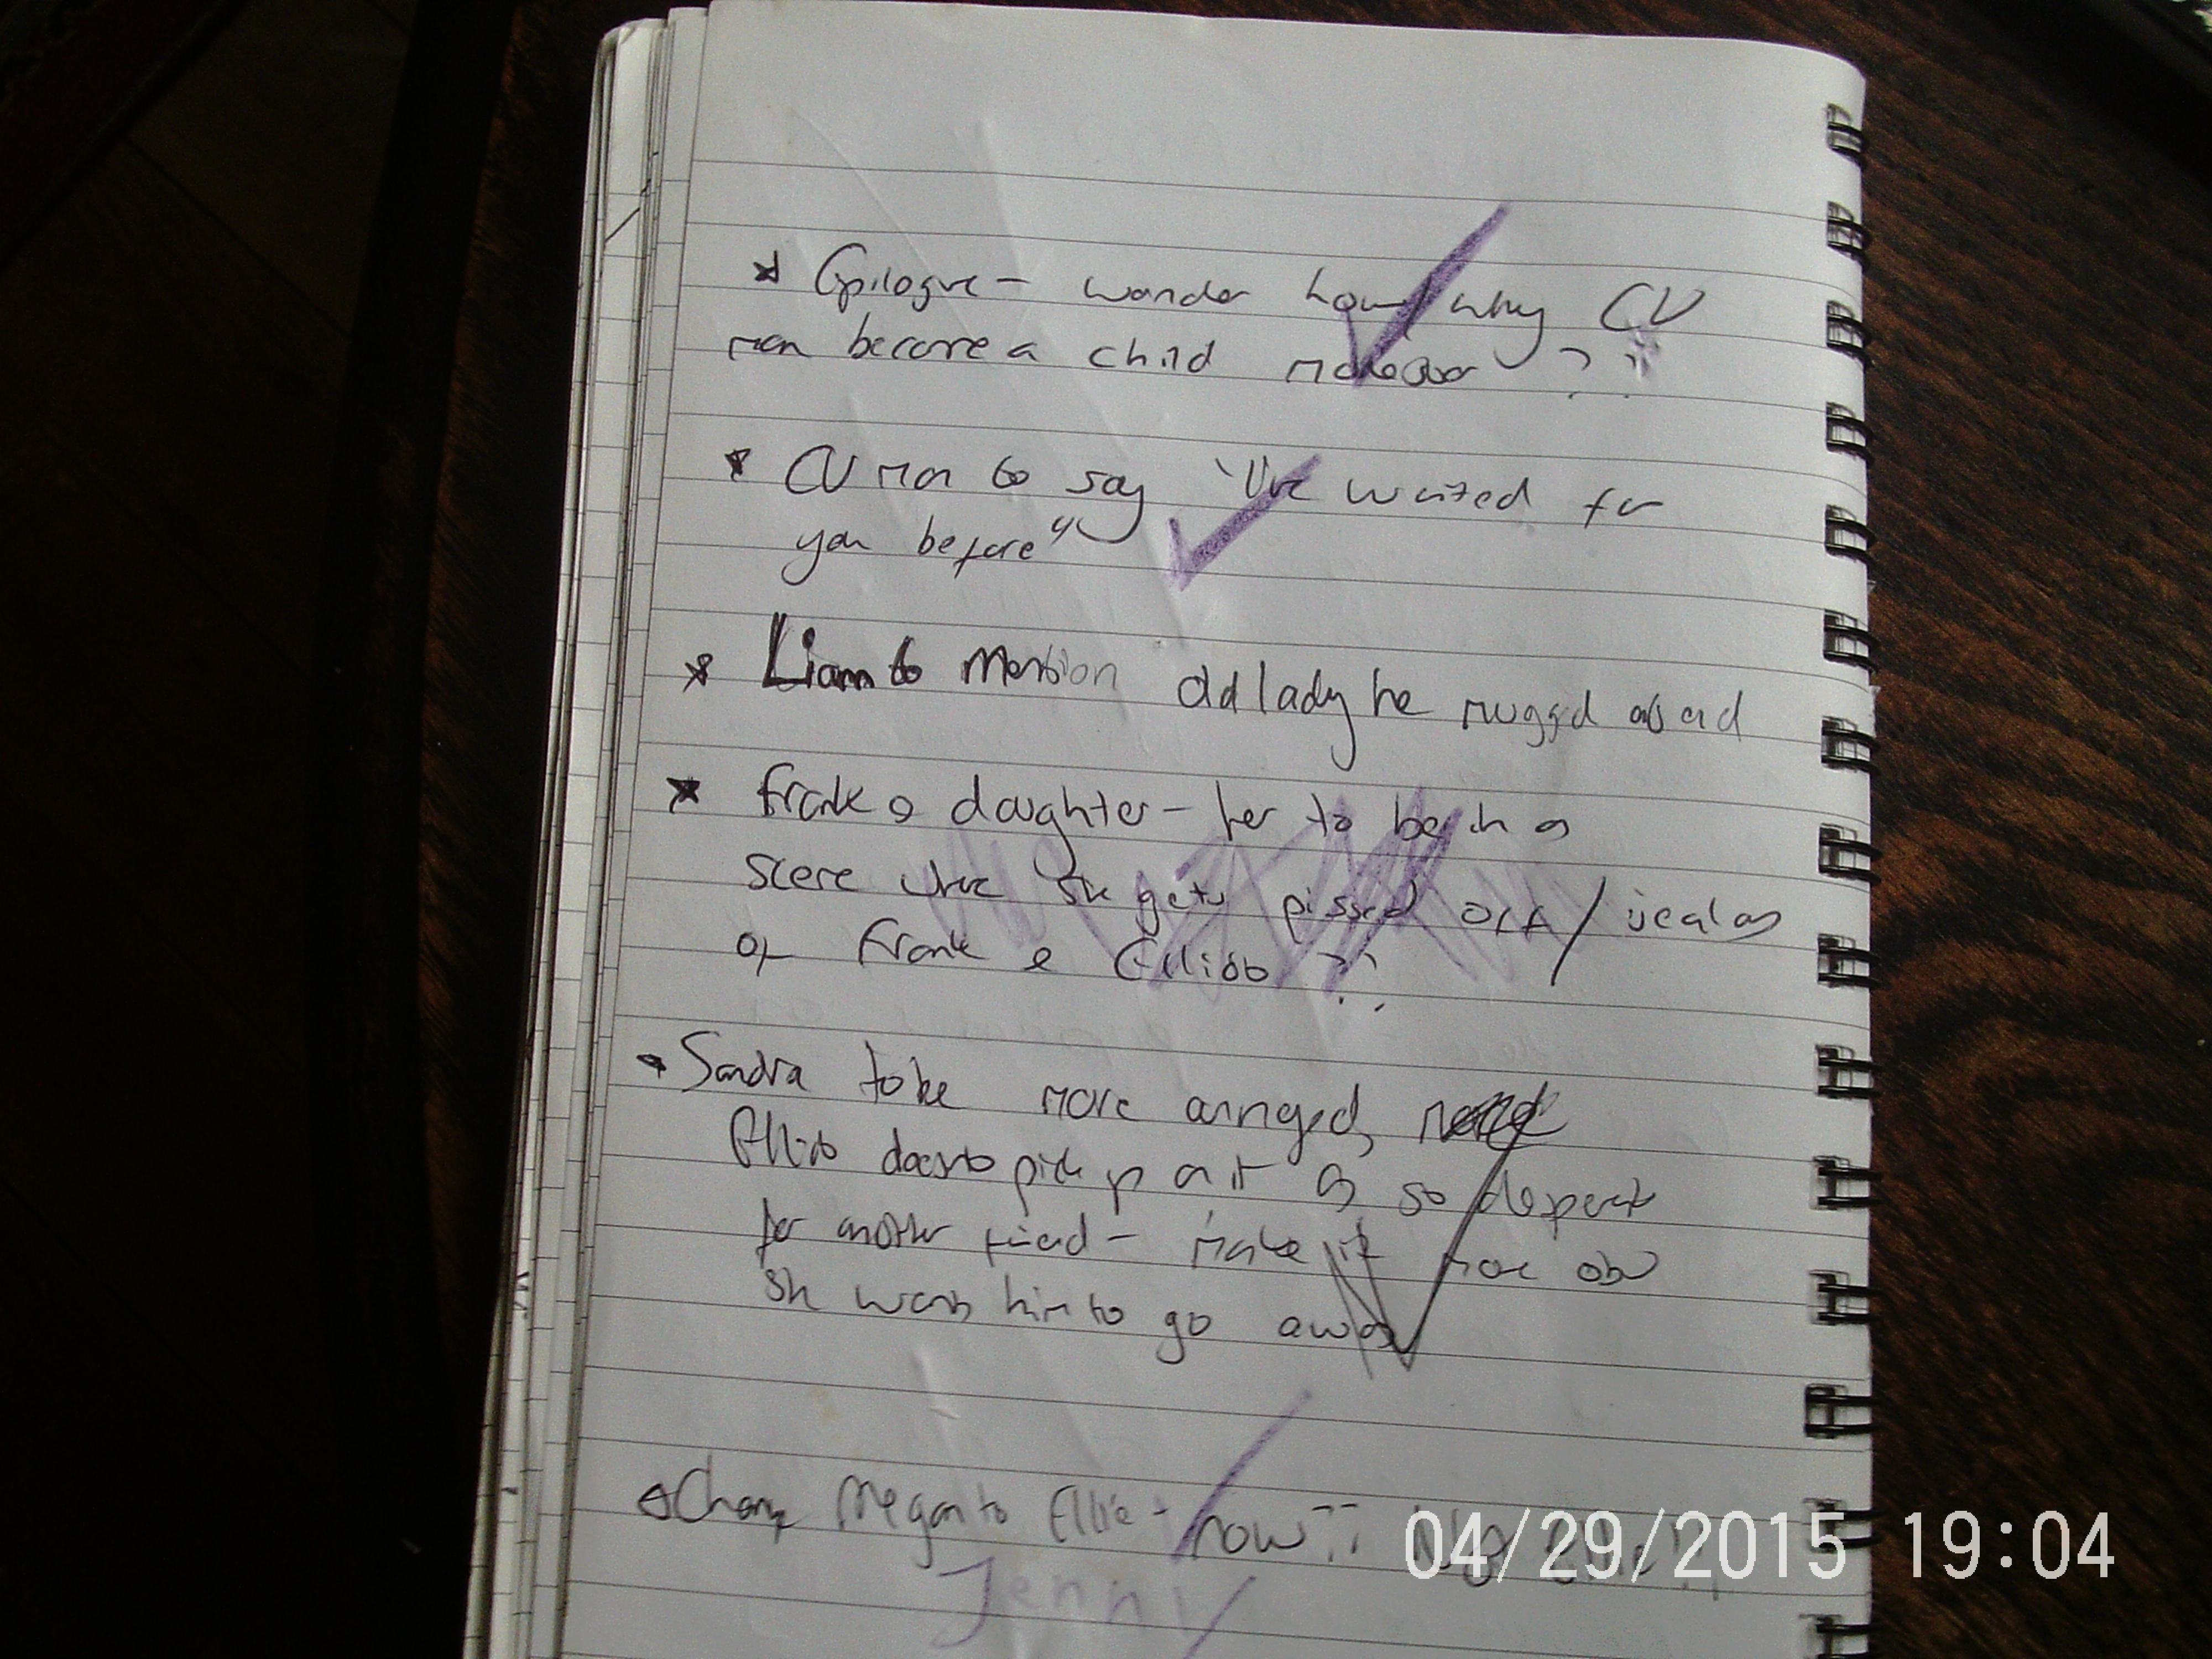 * Epilogue - wonder how/why CV
man become a child molester ??
* CV man to say "I've waited for
you before"
* Liam to mention old lady he mugged as a kid
* Frank & daughter - her to be in a
scene where she gets pissed off / jealous
of Frank & Elliot ??
* Sandra to be more annoyed,
Elliot doesnt pick up on it as so desperate
for another friend - make it more obv
she wants him to go away
Change Megan to Ellie - now ??
Jenny
04/29/2015 19:04